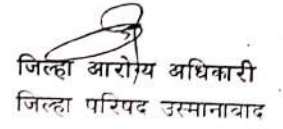 जिल्हा आरोग्य अधिकारी
जिल्हा परिषद उस्मानाबाद